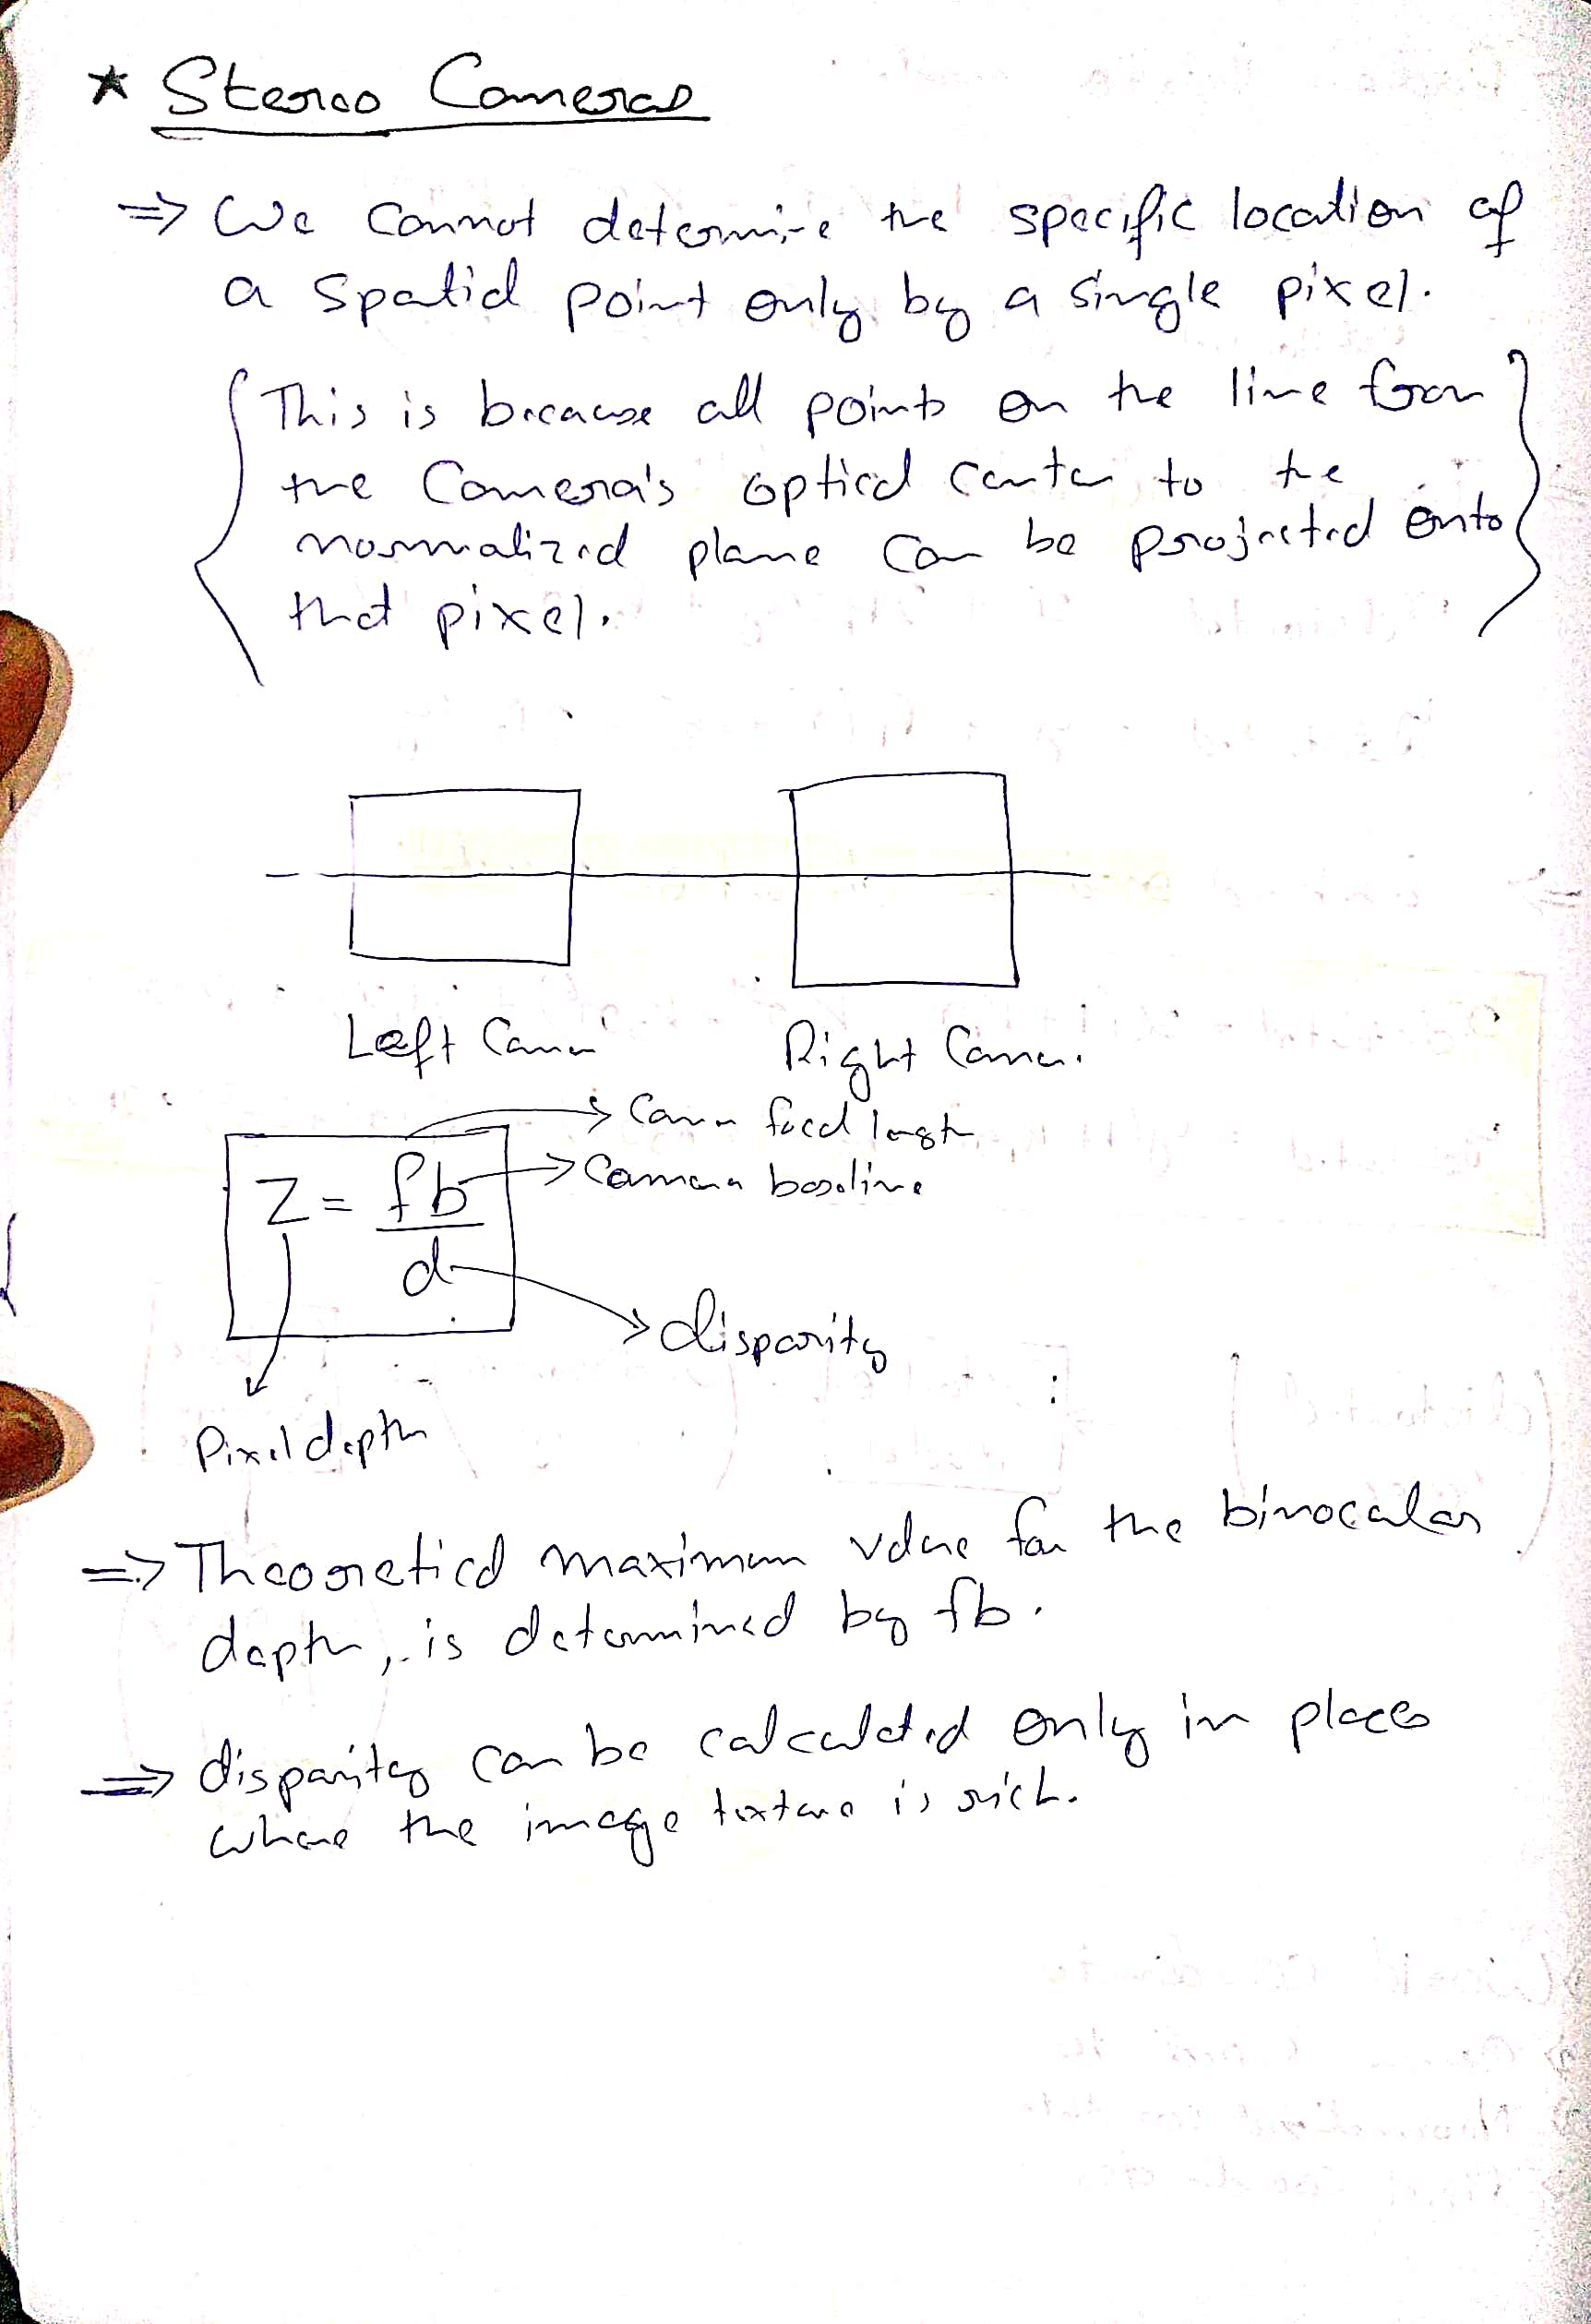 * Stereo Cameras
=> We cannot determine the specific location of
a spatial point only by a single pixel.
{ This is because all points on the line from }
the Camera's optical center to the
normalized plane can be projected onto
that pixel.
Left Cam
Right Camer.
-> Cam focal length
Z = fb/d
-> Camera baseline
-> disparity
Pixel depth
=> Theoretical maximum value for the binocular
depth, is determined by fb.
=> disparity can be calculated only in places
where the image texture is rich.